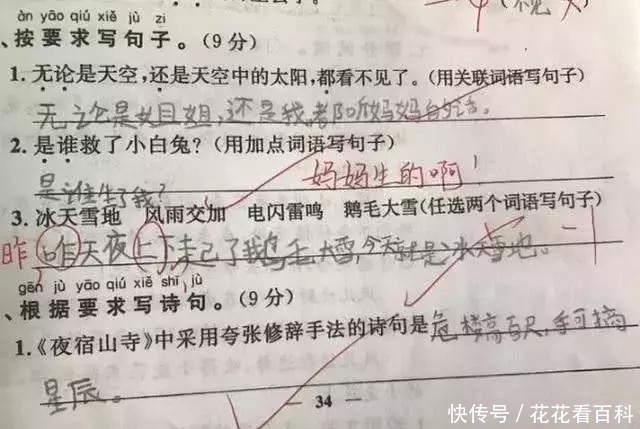 àn yāo qiú xiě jù zi
、按要求写句子。(9分)
1.无论是天空,还是天空中的太阳,都看不见了。(用关联词语写句子)
无论是姐姐,还是我,都听妈妈的话。
2.是谁救了小白兔?(用加点词语写句子)
妈妈生的啊!
是谁生了我?
3.冰天雪地 风雨交加 电闪雷鸣 鹅毛大雪(任选两个词语写句子)
昨 天夜 下 了 毛大雪,今天就是冰天雪地。 一1
gēn jù yāo qiú xiě shī jù
、根据要求写诗句。(9分)
1.《夜宿山寺》中采用夸张修辞手法的诗句是危楼高百尺,手可摘
星辰。
— 34 —
快传号/花花看百科